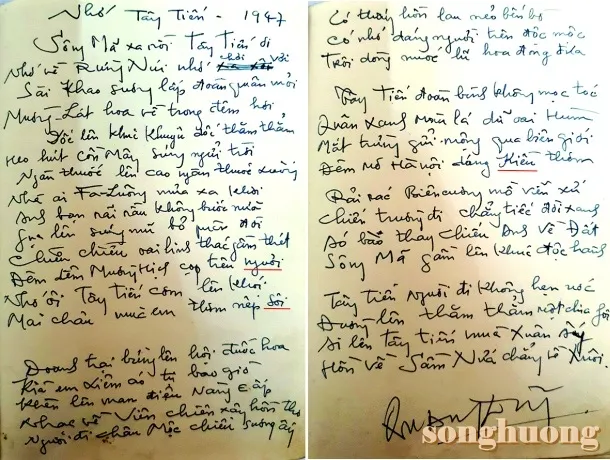 Nhớ Tây Tiến - 1947
Sông Mã xa rồi Tây Tiến ơi
Nhớ về Rừng Núi nhớ chơi vơi
Sài Khao sương lấp đoàn quân mỏi
Mường Lát hoa về trong đêm hơi
Dốc lên khúc khuỷu dốc thăm thẳm
Heo hút cồn Mây súng ngửi trời
Ngàn thước lên cao ngàn thước xuống
Nhà ai Fa-Luông mưa xa khơi
Anh bạn rãi rầu không bước nữa
Gục lên súng mũ bỏ quên đời
Chiều chiều oai linh thác gầm thét
Đêm đêm Mường Hịch cọp trêu người
Nhớ ôi Tây Tiến cơm lên khói
Mai Châu mùa em thơm nếp sôi
Doanh trại bừng lên hội đuốc hoa
Kìa em xiêm áo tự bao giờ
Khèn lên man điệu nàng e ấp
Nhạc về Viên chiên xây hồn thơ
Người đi Châu Mộc chiều sương ấy
Có thấy hồn lau nẻo bến bờ
Có nhớ dáng người trên độc mộc
Trôi dòng nước lũ hoa đong đưa
Tây Tiến đoàn binh không mọc tóc
Quân xanh màu lá dữ oai Hùm
Mắt trừng gửi mộng qua biên giới
Đêm mơ Hà Nội dáng Kiều thơm
Rải rác Biên cương mồ viễn xứ
Chiến trường đi chẳng tiếc đời xanh
Áo bào thay chiếu Anh về Đất
Sông Mã gầm lên khúc độc hành
Tây Tiến Người đi không hẹn ước
Đường lên thăm thẳm một chia fôi
Ai lên Tây Tiến mùa Xuân ấy
Hồn về Sầm Nứa chẳng về Xuôi.
songhuong